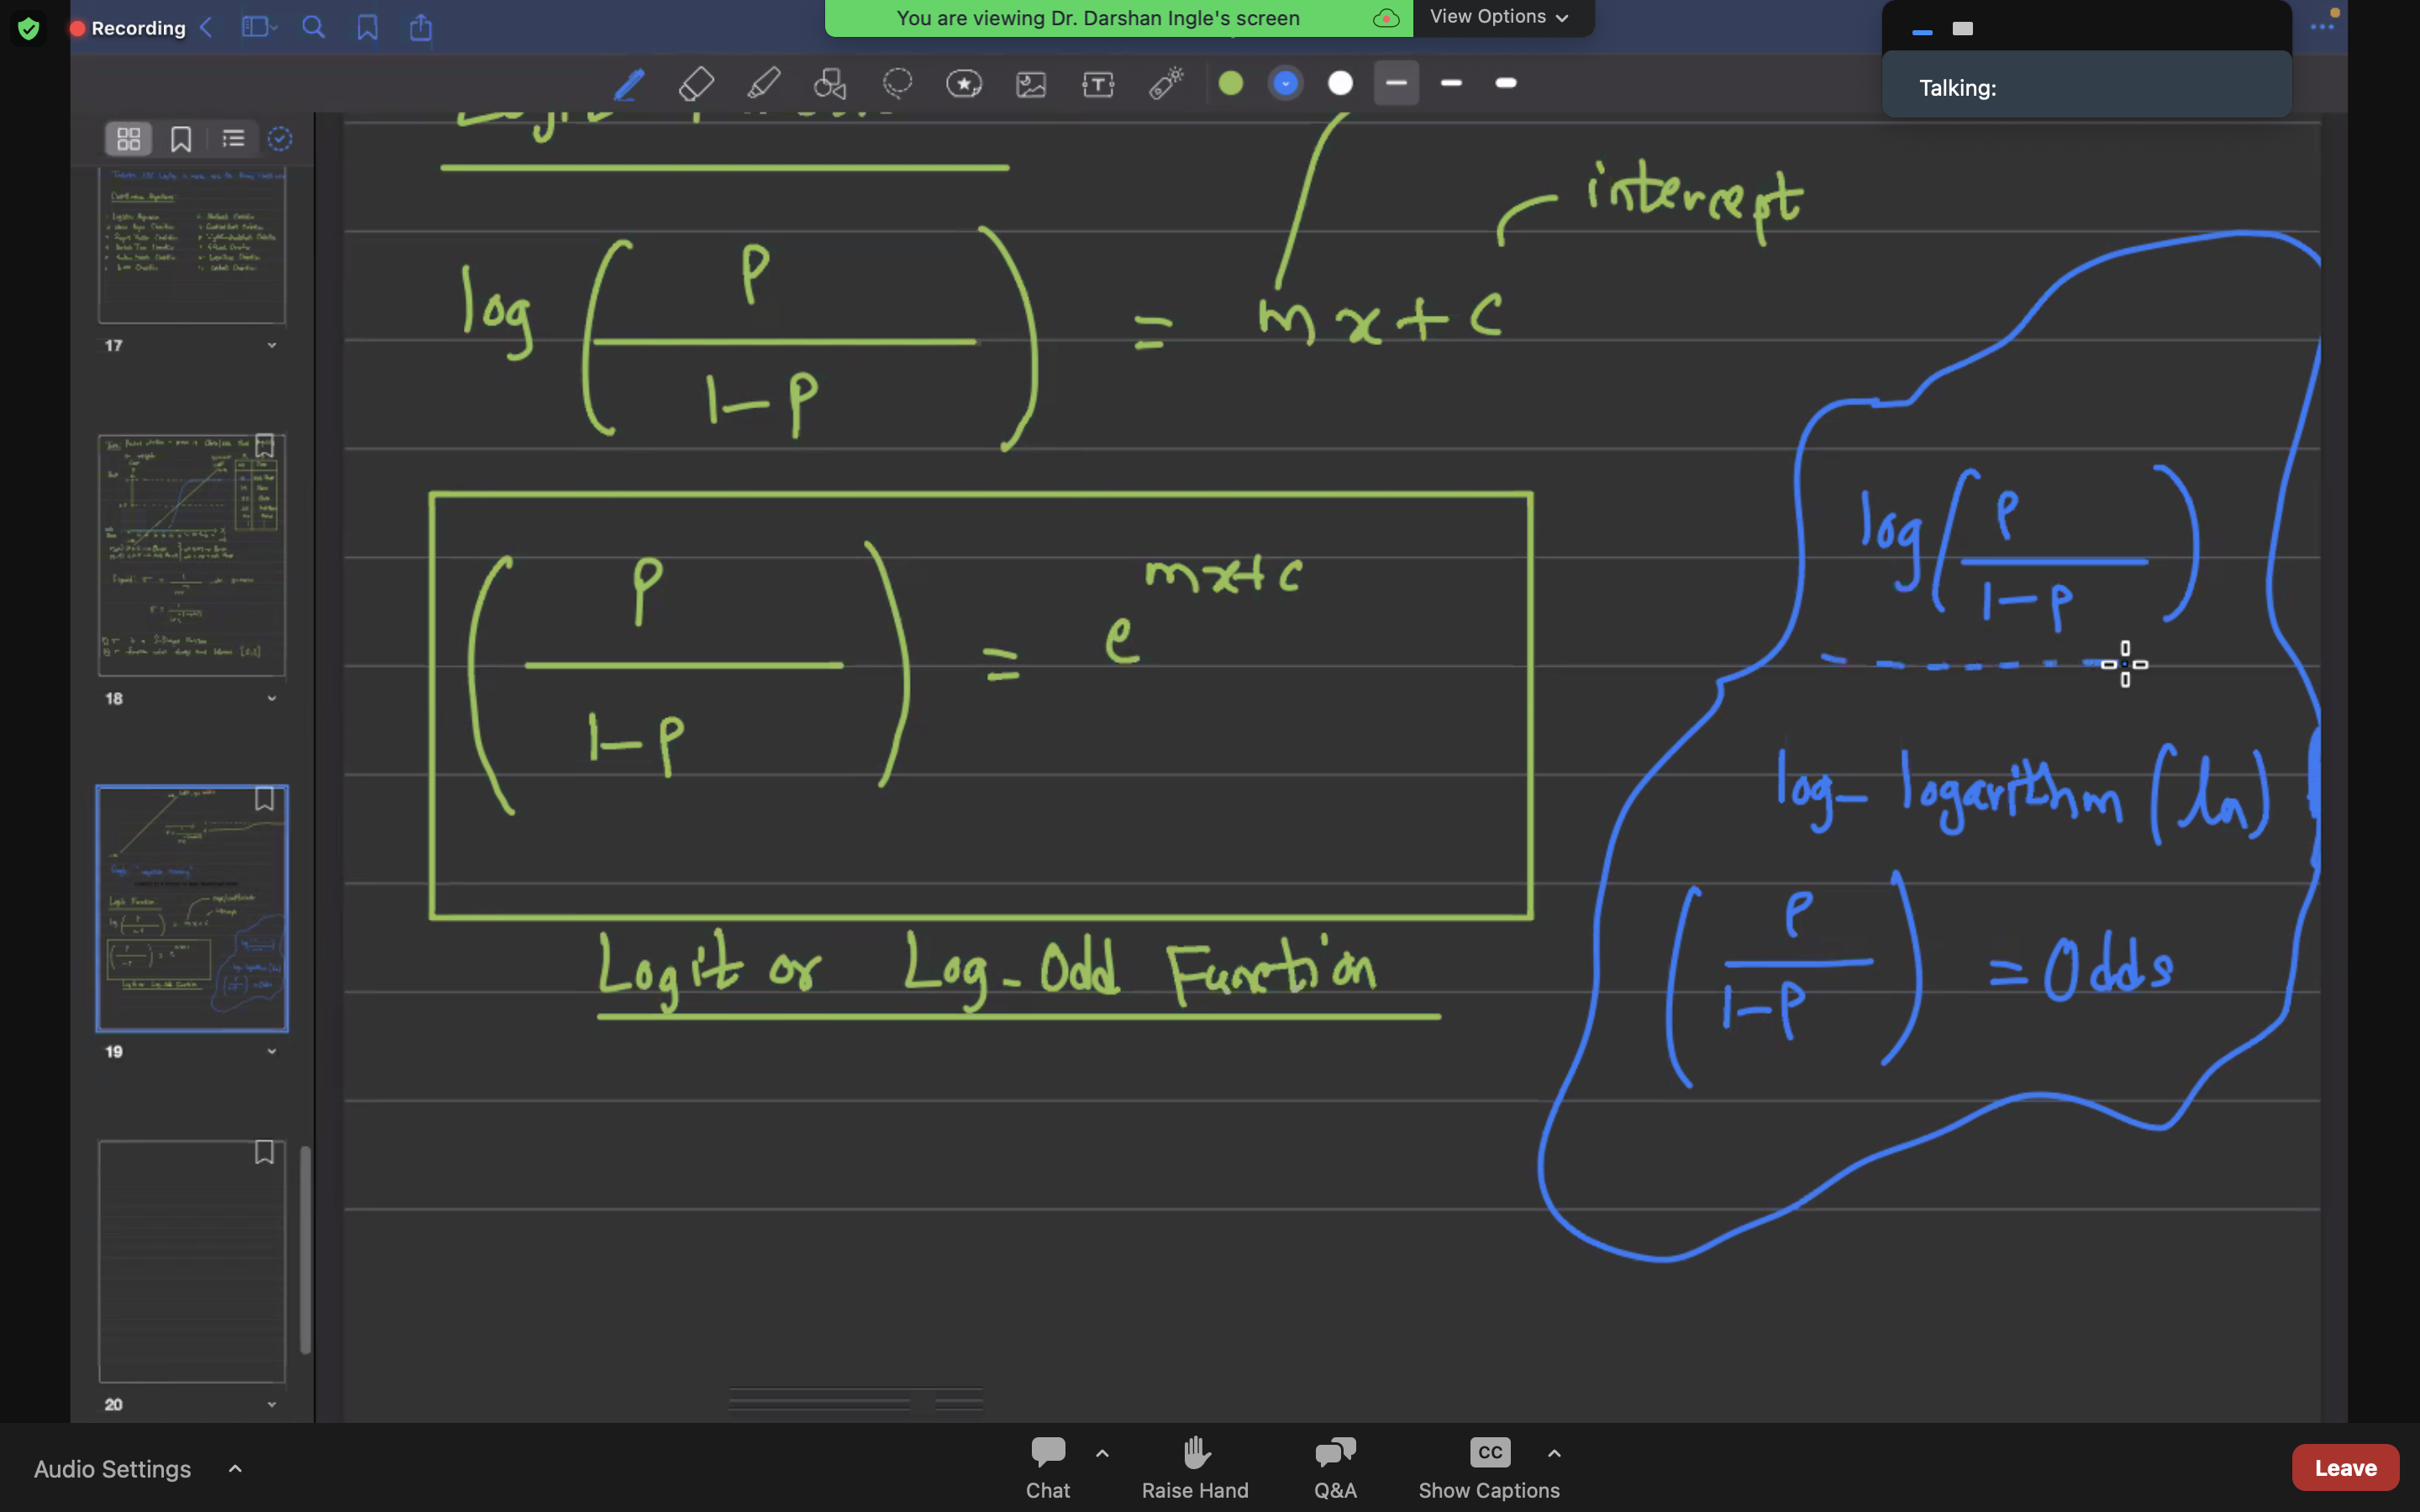 Recording
You are viewing Dr. Darshan Ingle's screen
View Options
Talking:
intercept
log ( P / 1-P ) = mx + c
( P / 1-P ) = e^{mx+c}
Logit or Log-Odd Function
log ( P / 1-P )
log - logarithm (ln)
( P / 1-P ) = Odds
17
18
19
20
Audio Settings
Chat
Raise Hand
Q&A
CC
Show Captions
Leave